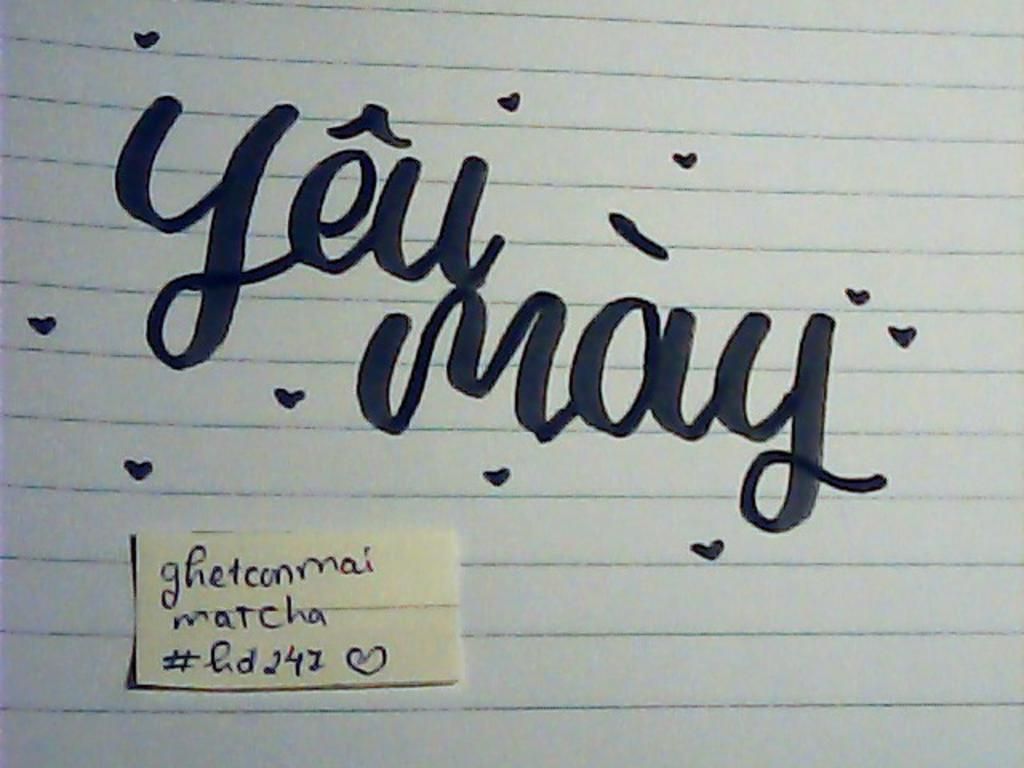 yêu
mày
ghetconmai
matcha
#hd247 ♡